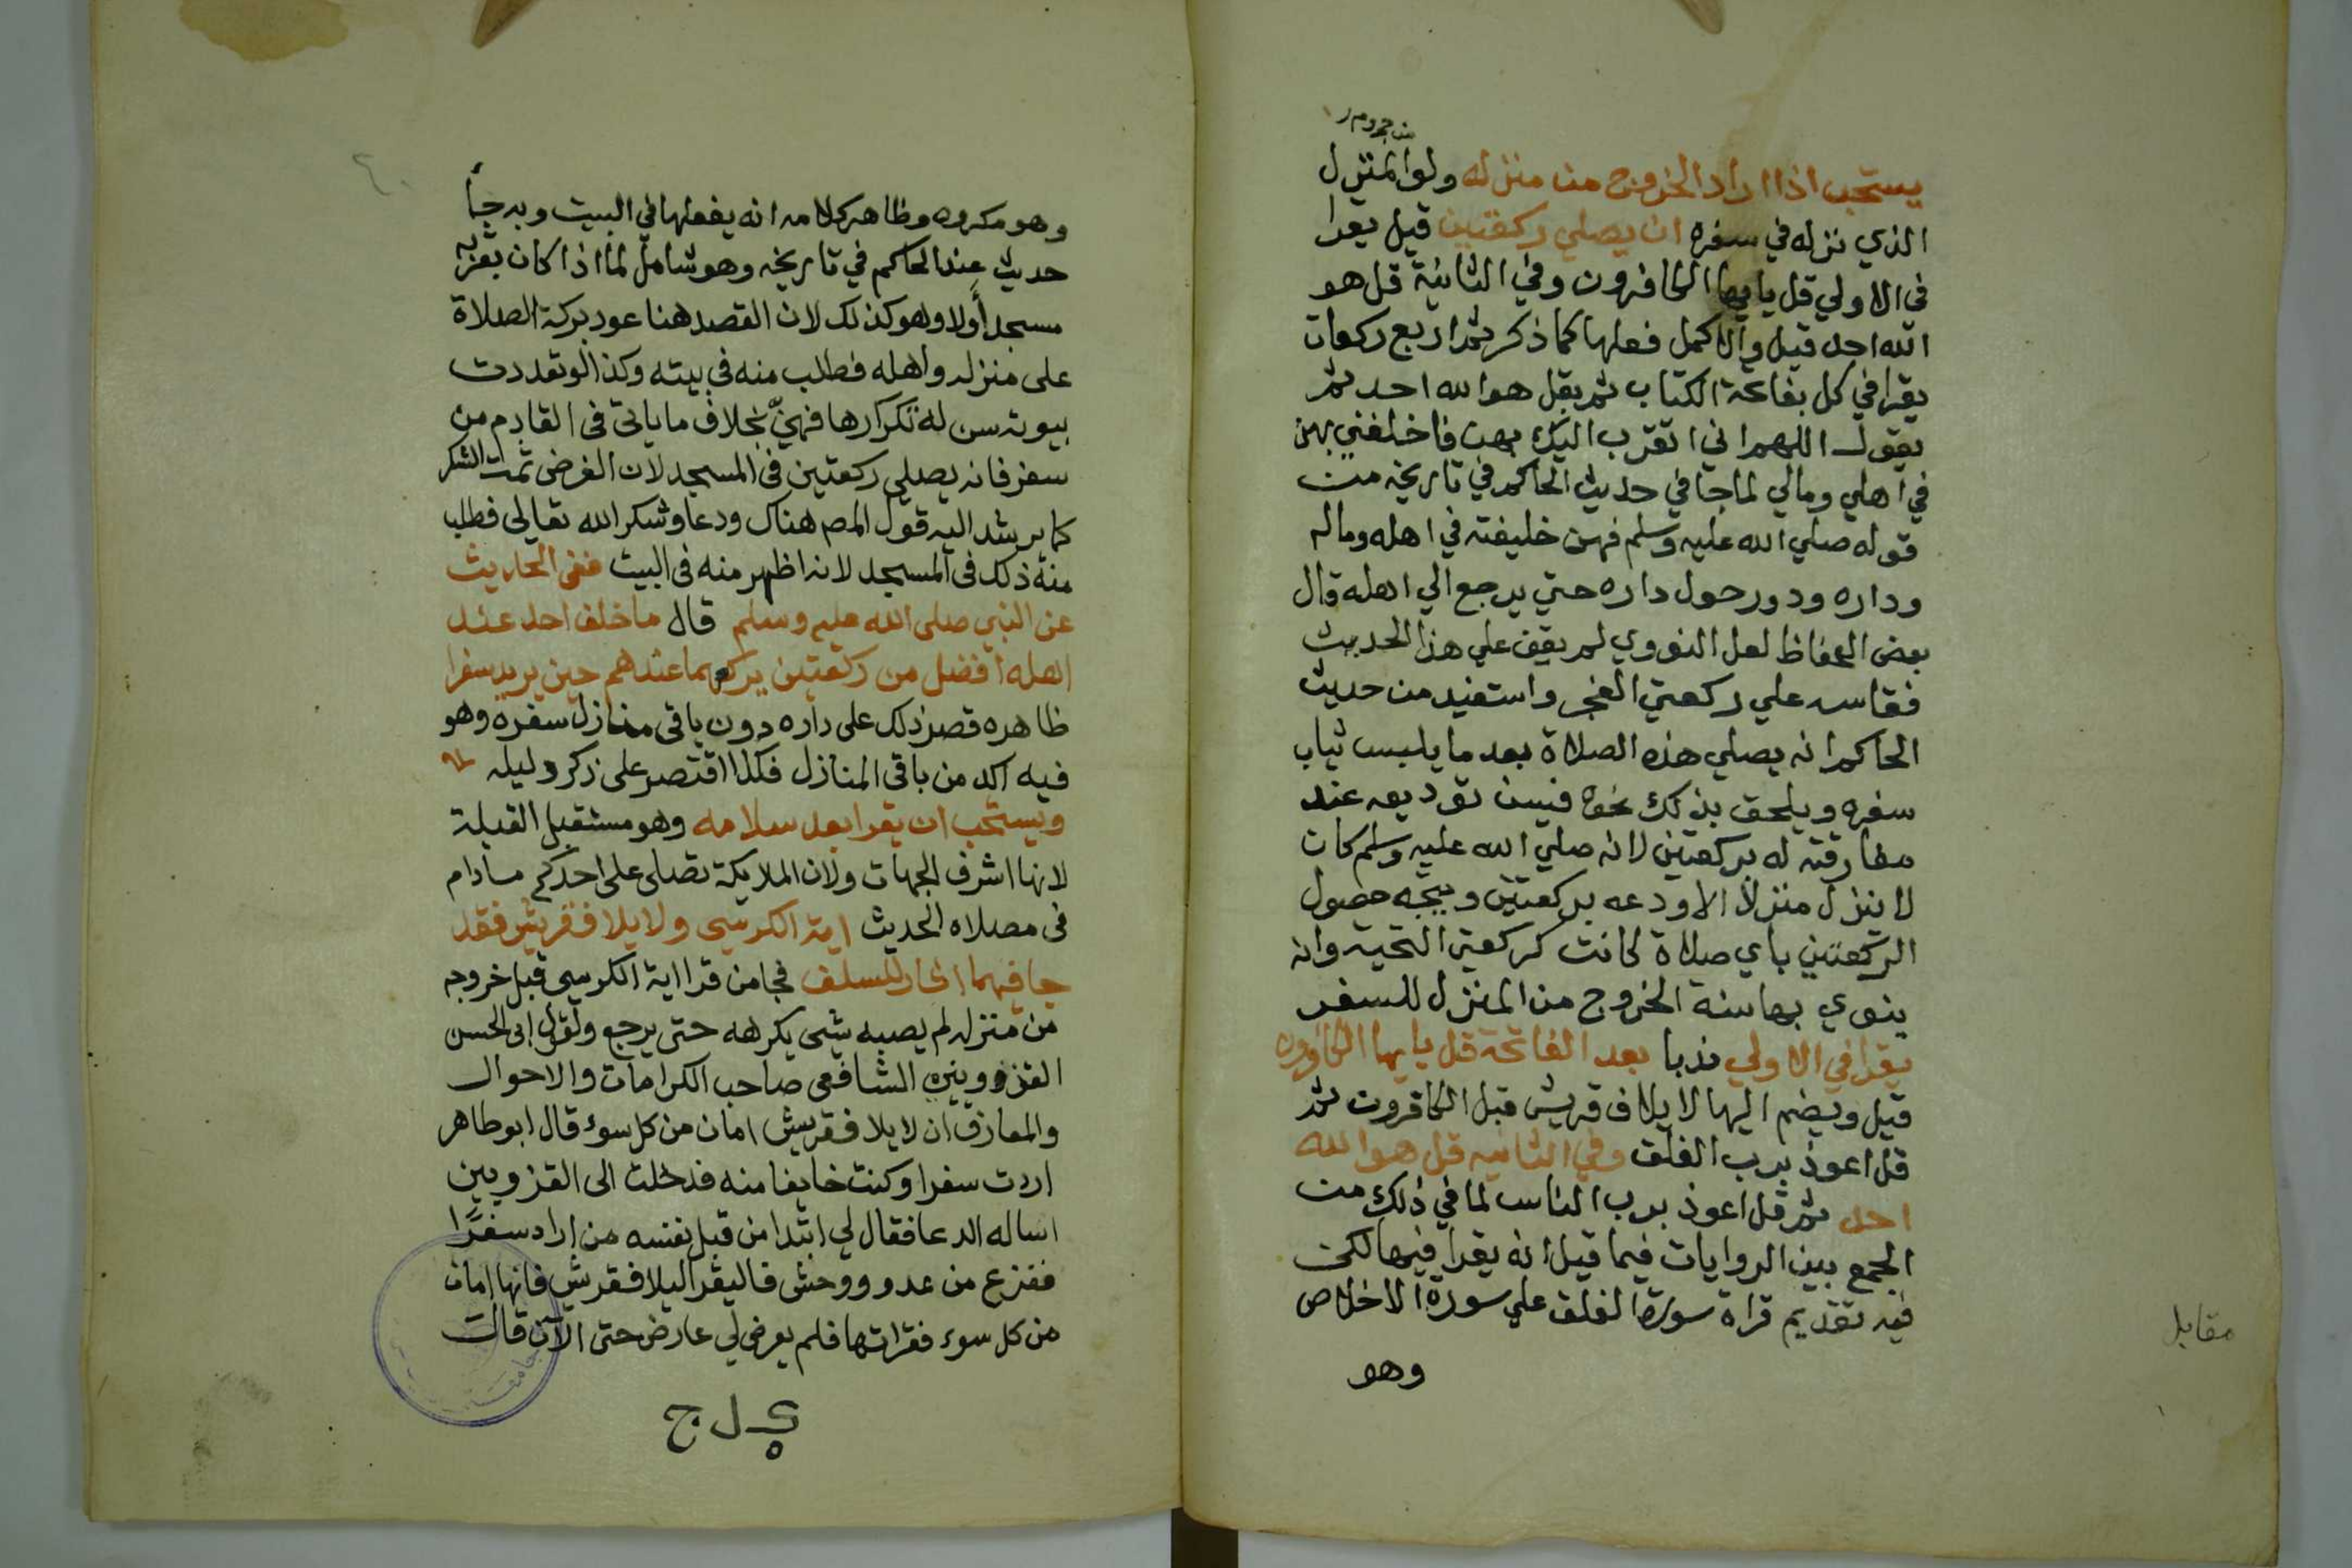 يستحب اذا اراد الخروج من منزله ولو المنزل
الذي نزله في سفره ان يصلي ركعتين قيل يقرا
في الاولي قل يايها الكافرون وفي الثانية قل هو
الله احد قيل والاكمل فعلها كما ذكر ثم اربع ركعات
يقرا في كل بفاتحة الكتاب ثم بقل هو الله احد ثم
يقول اللهم اني اتقرب اليك بهن فاخلفني بهن
في اهلي ومالي لما جا في حديث الحاكم في تاريخه من
قوله صلي الله عليه وسلم فهن خليفته في اهله وماله
وداره ودور حول داره حتي يرجع الي اهله قال
بعض الحفاظ لعل النووي لم يقف علي هذا الحديث
فقاس علي ركعتي الفجر واستفيد من حديث
الحاكم انه يصلي هذه الصلاة بعد ما يلبس ثياب
سفره ويلحق بذلك نحوه فيسن توديعه عند
مفارقته له بركعتين لانه صلي الله عليه وسلم كان
لا ينزل منزلا الا ودعه بركعتين ويتجه حصول
الركعتين باي صلاة كانت كركعتي التحية وانه
ينوي بها سنة الخروج من المنزل للسفر
يقرا في الاولي ندبا بعد الفاتحة قل يايها الكافرون
قيل ويضم اليها لايلاف قريش قبل الكافرون ثم
قل اعوذ برب الفلق وفي الثانيه قل هو الله
احد ثم قل اعوذ برب الناس لما في ذلك من
الجمع بين الروايات فيما قيل انه يقرا فيها لكن
فيه تقديم قراة سورة الفلق علي سورة الاخلاص
وهو
مقابل
وهو مكروه وظاهر كلامه انه يفعلها في البيت وبه جا
حديث عند الحاكم في تاريخه وهو شامل لما اذا كان بقربه
مسجد أولا وهو كذلك لان القصد هنا عود بركة الصلاة
على منزله واهله فطلب منه في بيته وكذا لو تعددت
بيوته سن له تكرارها فهن بخلاف ما ياتى فى القادم من
سفر فانه يصلي ركعتين فى المسجد لان الغرض ثمت الشكر
كما يرشد اليه قول المص هناك ودعا وشكر الله تعالى فطلب
منه ذلك فى المسجد لانه اظهر منه فى البيت ففى الحديث
عن النبي صلى الله عليه وسلم قال ما خلف احد عند
اهله افضل من ركعتين يركعهما عندهم حين يريد سفرا
ظاهره قصر ذلك على داره دون باقى منازل سفره وهو
فيه اكد من باقى المنازل فلذا اقتصر على ذكر وليله
ويستحب ان يقرا بعد سلامه وهو مستقبل القبلة
لانها اشرف الجهات ولان الملايكة تصلى على احدكم مادام
فى مصلاه الحديث اية الكرسى ولايلاف قريش فقد
جا فيهما اثار للسلف فجا من قرا اية الكرسى قبل خروجه
من منزله لم يصبه شى يكرهه حتى يرجع ولقول ابى الحسن
القزوينى الشافعى صاحب الكرامات والاحوال
والمعارف ان لايلاف قريش امان من كل سوء قال ابو طاهر
اردت سفرا وكنت خايفا منه فدخلت الى القزوينى
اساله الدعا فقال لي ابتدا من قبل نفسه من اراد سفرًا
ففزع من عدو ووحش فاليقرا ليلاف قريش فانها امان
من كل سوء فقراتها فلم يعرض لي عارض حتى الآن قالت